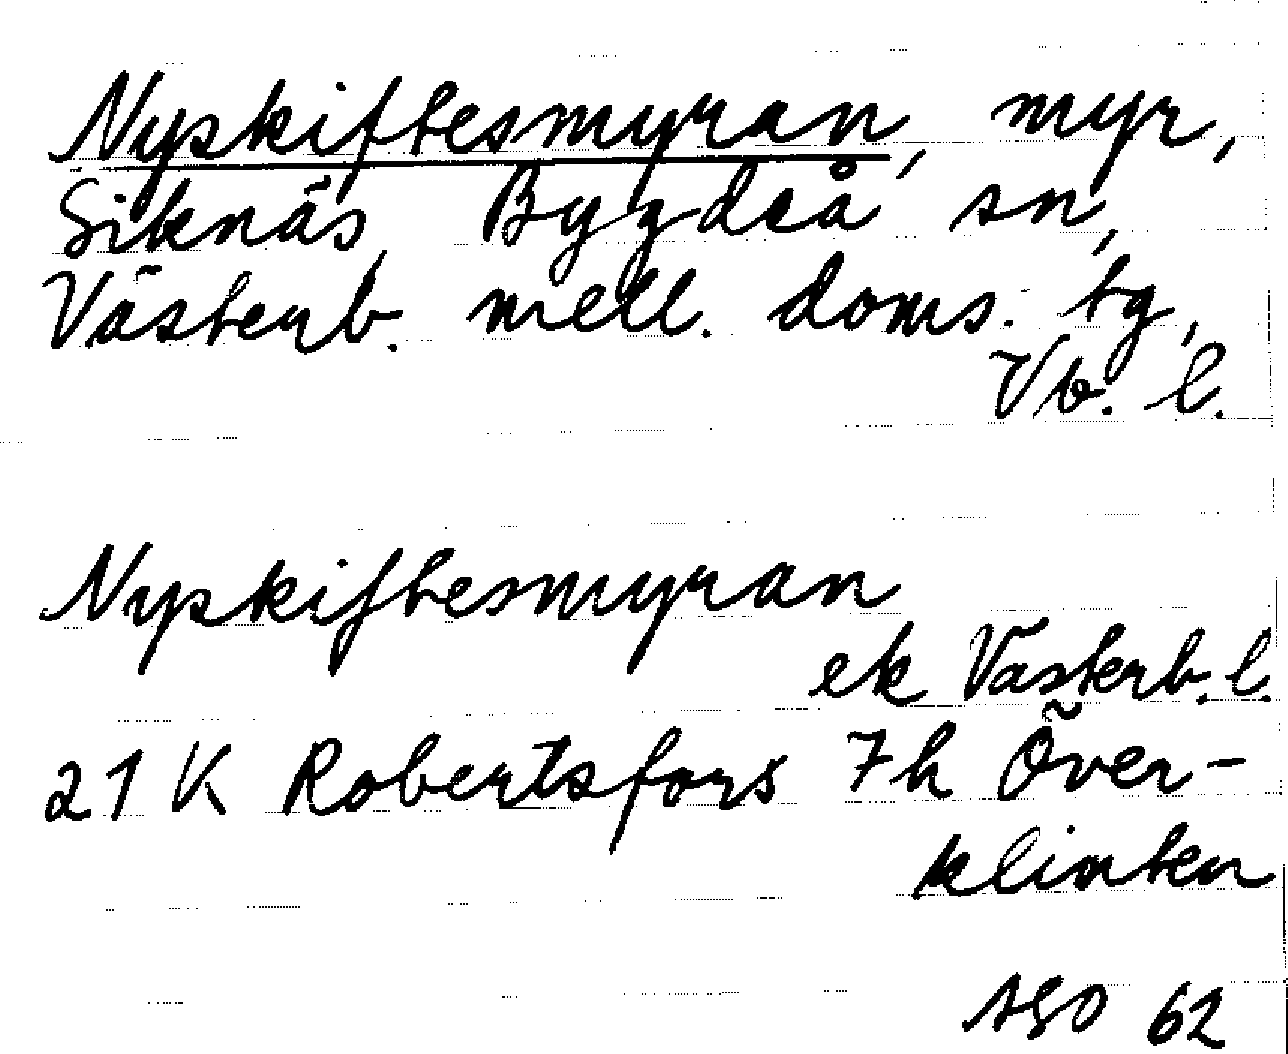 Nyskiftesmyran, myr,
Siknäs, Bygdeå sn,
Västerb. mell. doms. tg,
Vb. l.
Nyskiftesmyran
ek Västerb. l.
21 K Robertsfors 7h Över-
klinten
ASO 62